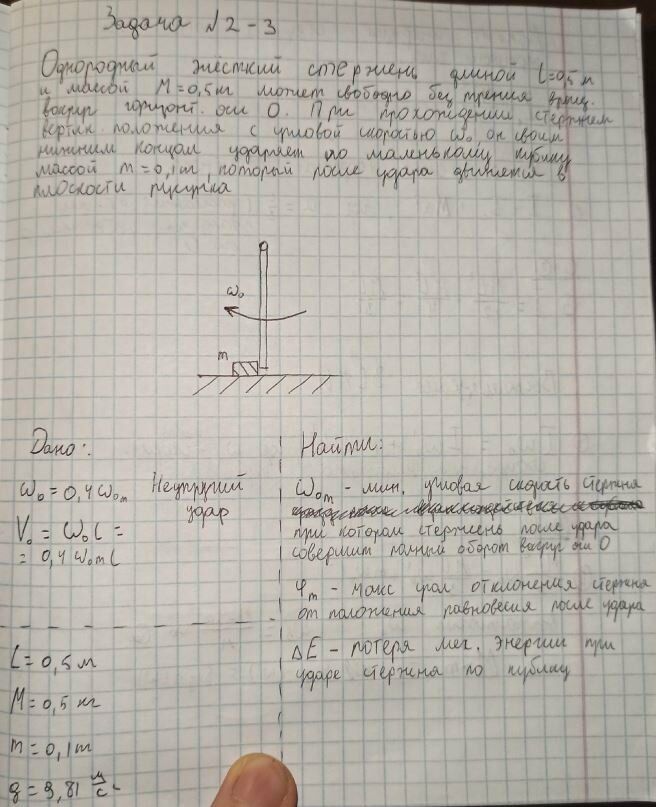 Задача №2-3
Однородный жёсткий стержень длиной l=0,5 м
и массой M=0,5 кг может свободно без трения вращ.
вокруг горизонт. оси О. При прохождении стержнем
вертик. положения с угловой скоростью ω₀ он своим
нижним концом ударяет по маленькому кубику
массой m=0,1m, который после удара движется в
плоскости рисунка
ω₀
m
Дано:
ω₀=0,4ω₀ₘ Неупругий
удар
V₀ = ω₀l =
= 0,4 ω₀ₘ l
L=0,5 м
M=0,5 кг
m=0,1m
g=9,81 м/с²
Найти:
ω₀ₘ - мин. угловая скорость стержня
при котором стержень после удара
совершит полный оборот вокруг оси О
φₘ - макс угол отклонения стержня
от положения равновесия после удара
ΔE - потеря мех. энергии при
ударе стержня по кубику